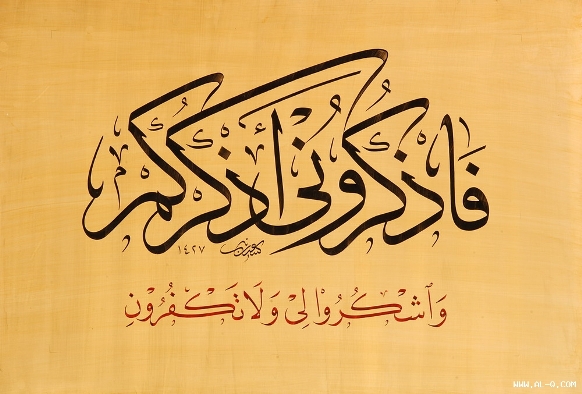 فَاذْكُرُونِي أَذْكُرْكُمْ
١٤٢٧
وَٱشْكُرُوا۟ لِى وَلَا تَكْفُرُونِ
WWW.AL-Q.COM